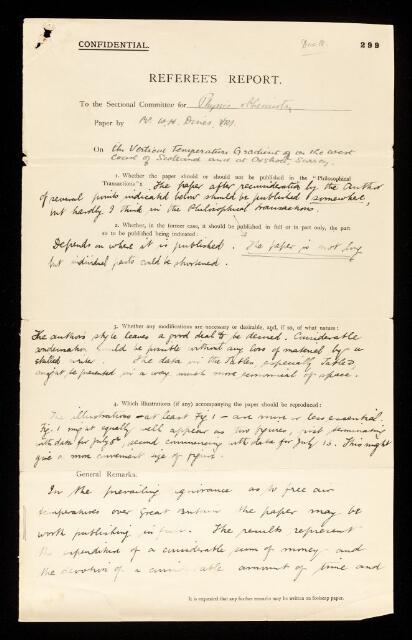 CONFIDENTIAL.
299
REFEREE'S REPORT.
To the Sectional Committee for Physics & Chemistry
Paper by Mr. W.H. Dines, FRS.
On the Vertical Temperature Gradient on the west
Coast of Scotland and at Oxshott, Surrey.
1. Whether the paper should or should not be published in the "Philosophical
Transactions": The paper after reconsideration by the author
of several points indicated below should be published somewhere,
but hardly I think in the Philosophical Transactions.
2. Whether, in the former case, it should be published in full or in part only, the part
so to be published being indicated:
Depends on where it is published. The paper is not long
but individual parts could be shortened.
3. Whether any modifications are necessary or desirable, and, if so, of what nature:
The author's style leaves a good deal to be desired. Considerable
condensation would be possible without any loss of material by a
skilled writer. The data in the Tables, especially Table
might be presented in a way much more economical of space.
4. Which illustrations (if any) accompanying the paper should be reproduced:
The illustrations - at least Fig. 1 - are more or less essential.
Fig. 1 might equally well appear as two figures, first terminating
with data for July second commencing with data for July 15. This might
give a more convenient size of figure.
General Remarks.
In the prevailing ignorance as to free air
temperatures over Great Britain the paper may be
worth publishing in The results represent
the expenditure of a considerable sum of money and
the devotion of a considerable amount of time and
It is requested that any further remarks may be written on foolscap paper.